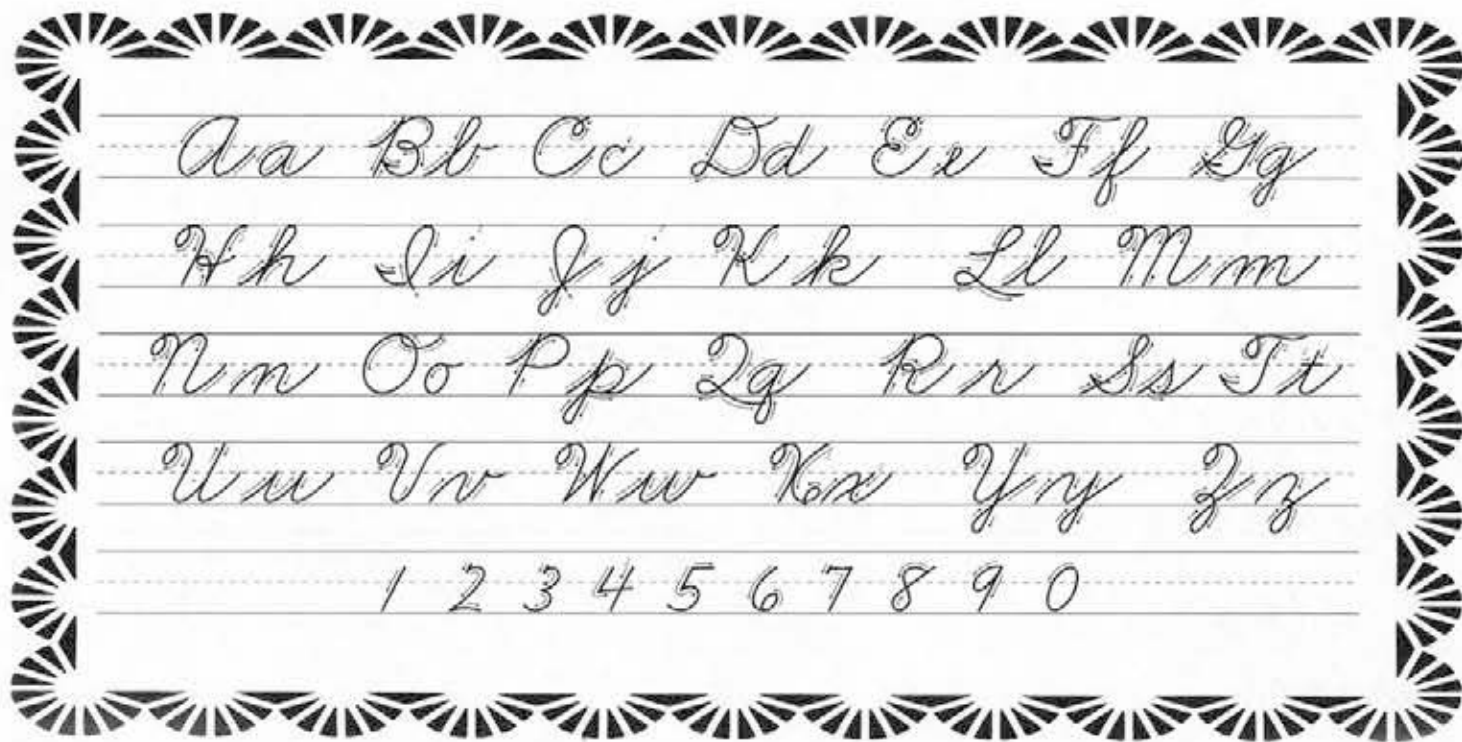 Aa Bb Cc Dd Ee Ff Gg
Hh Ii Jj Kk Ll Mm
Nn Oo Pp Qq Rr Ss Tt
Uu Vv Ww Xx Yy Zz
1 2 3 4 5 6 7 8 9 0